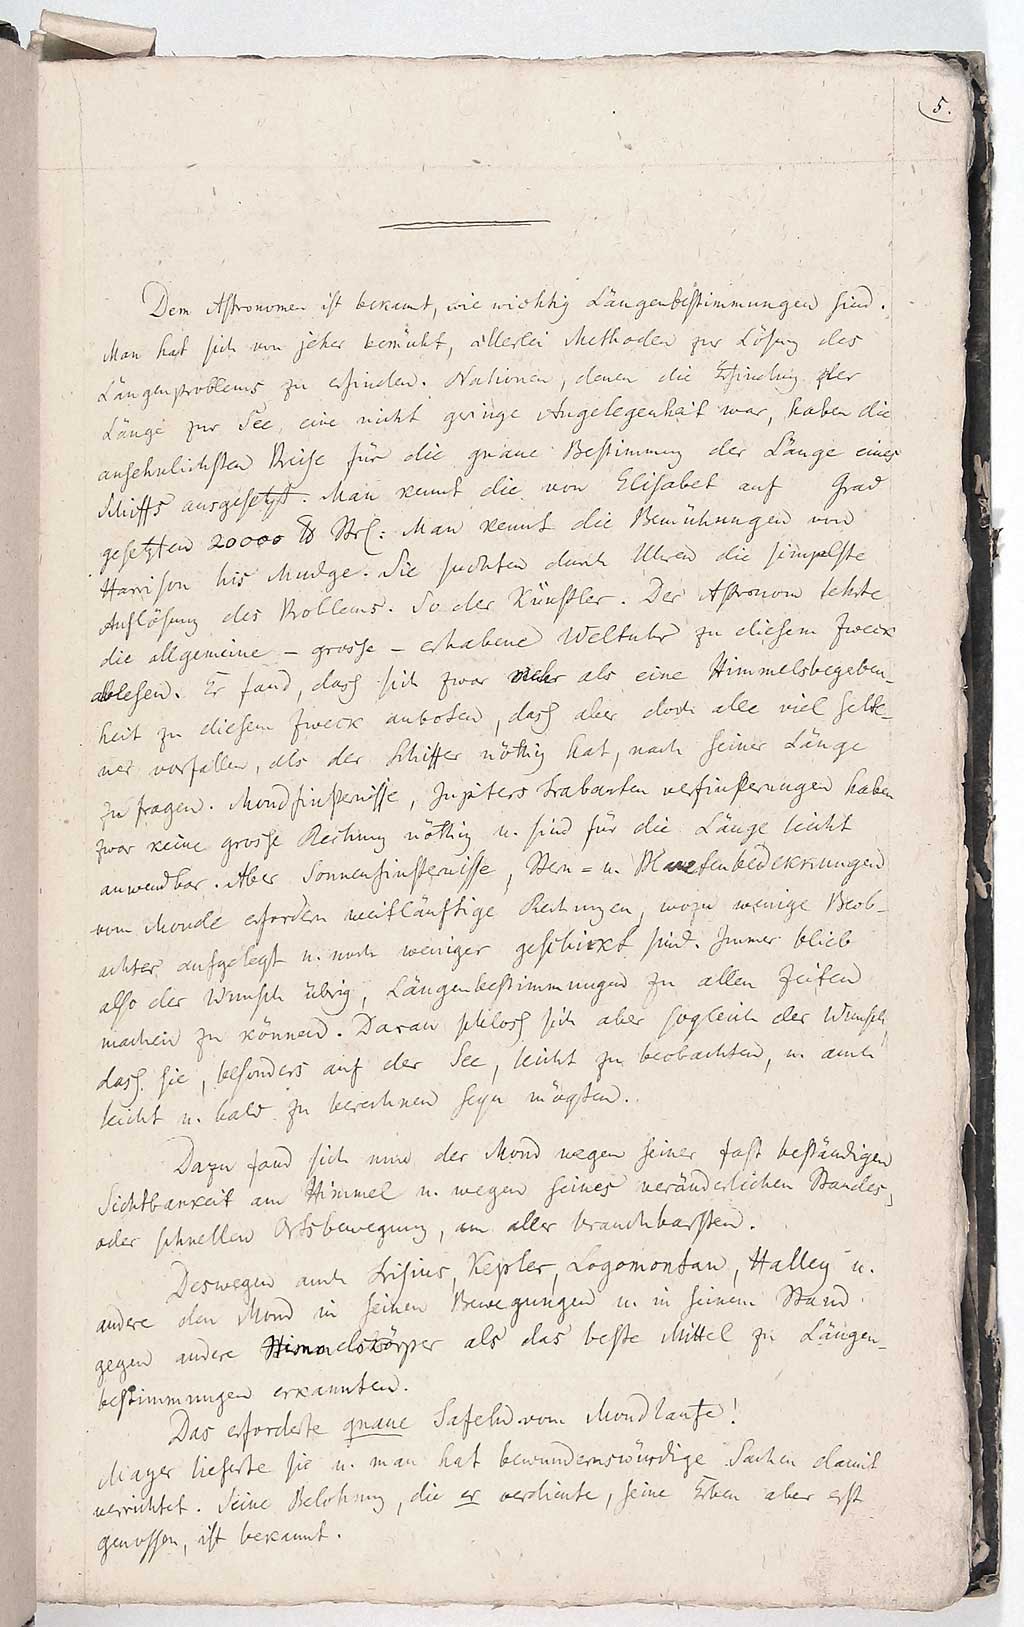 5.
Dem Astronomen ist bekannt, wie wichtig Längenbestimmungen sind.
Man hat sich von jeher bemüht, allerlei Methoden zur Lösung des
Längenproblems zu erfinden. Nationen, denen die Erfindung der
Länge zur See, eine nicht geringe Angelegenheit war, haben die
ansehnlichsten Preise für die gnaue Bestimmung der Länge eines
Schiffs ausgesetzt. Man kennt die von Elisabet auf Grad
gesetzten 20000 ℔ Strl: Man kennt die Bemühungen von
Harrison bis Mudge. Sie suchten durch Uhren die simpelste
Auflösung des Problems. So der Künstler. Der Astronom lehrte
die allgemeine – grosse – erhabene Weltuhr zu diesem Zweck
ablesen. Er fand, dass sich zwar mehr als eine Himmelsbegeben-
heit zu diesem Zweck anboten, dass aber doch alle viel selte-
ner vorfallen, als der Schiffer nöthig hat, nach seiner Länge
zu fragen. Mondfinsternisse, Jupiters Trabanten verfinsterungen haben
zwar keine grosse Rechnung nöthig u. sind für die Länge leicht
anwendbar. Aber Sonnenfinsternisse, Stern= u. Planetenbedekkungen
vom Monde erfordern weitläuftige Rechnungen, wozu wenige Beob-
achter aufgelegt u. noch weniger geschickt sind. Immer blieb
also der Wunsch übrig, Längenbestimmungen zu allen Zeiten
machen zu können. Daran schloss sich aber sogleich der Wunsch,
dass sie, besonders auf der See, leicht zu beobachten, u. auch
leicht u. bald zu berechnen seyn mögten.
Dazu fand sich nun der Mond wegen seiner fast beständigen
Sichtbarkeit am Himmel u. wegen seines veränderlichen Standes,
oder schnellen Ortsbewegung, am aller brauchbarsten.
Deswegen auch Frisius, Kepler, Logomontan, Halley u.
andere den Mond in seinen Bewegungen u. in seinem Stand
gegen andere Himmelskörper als das beste Mittel zu Längen-
bestimmungen erkannten.
Das erforderte gnaue Tafeln vom Mondlaufe!
Mayer lieferte sie u. man hat bewundernswürdige Sachen damit
verrichtet. Seine Belohnung, die er verdiente, seine Erben aber erst
genossen, ist bekannt.